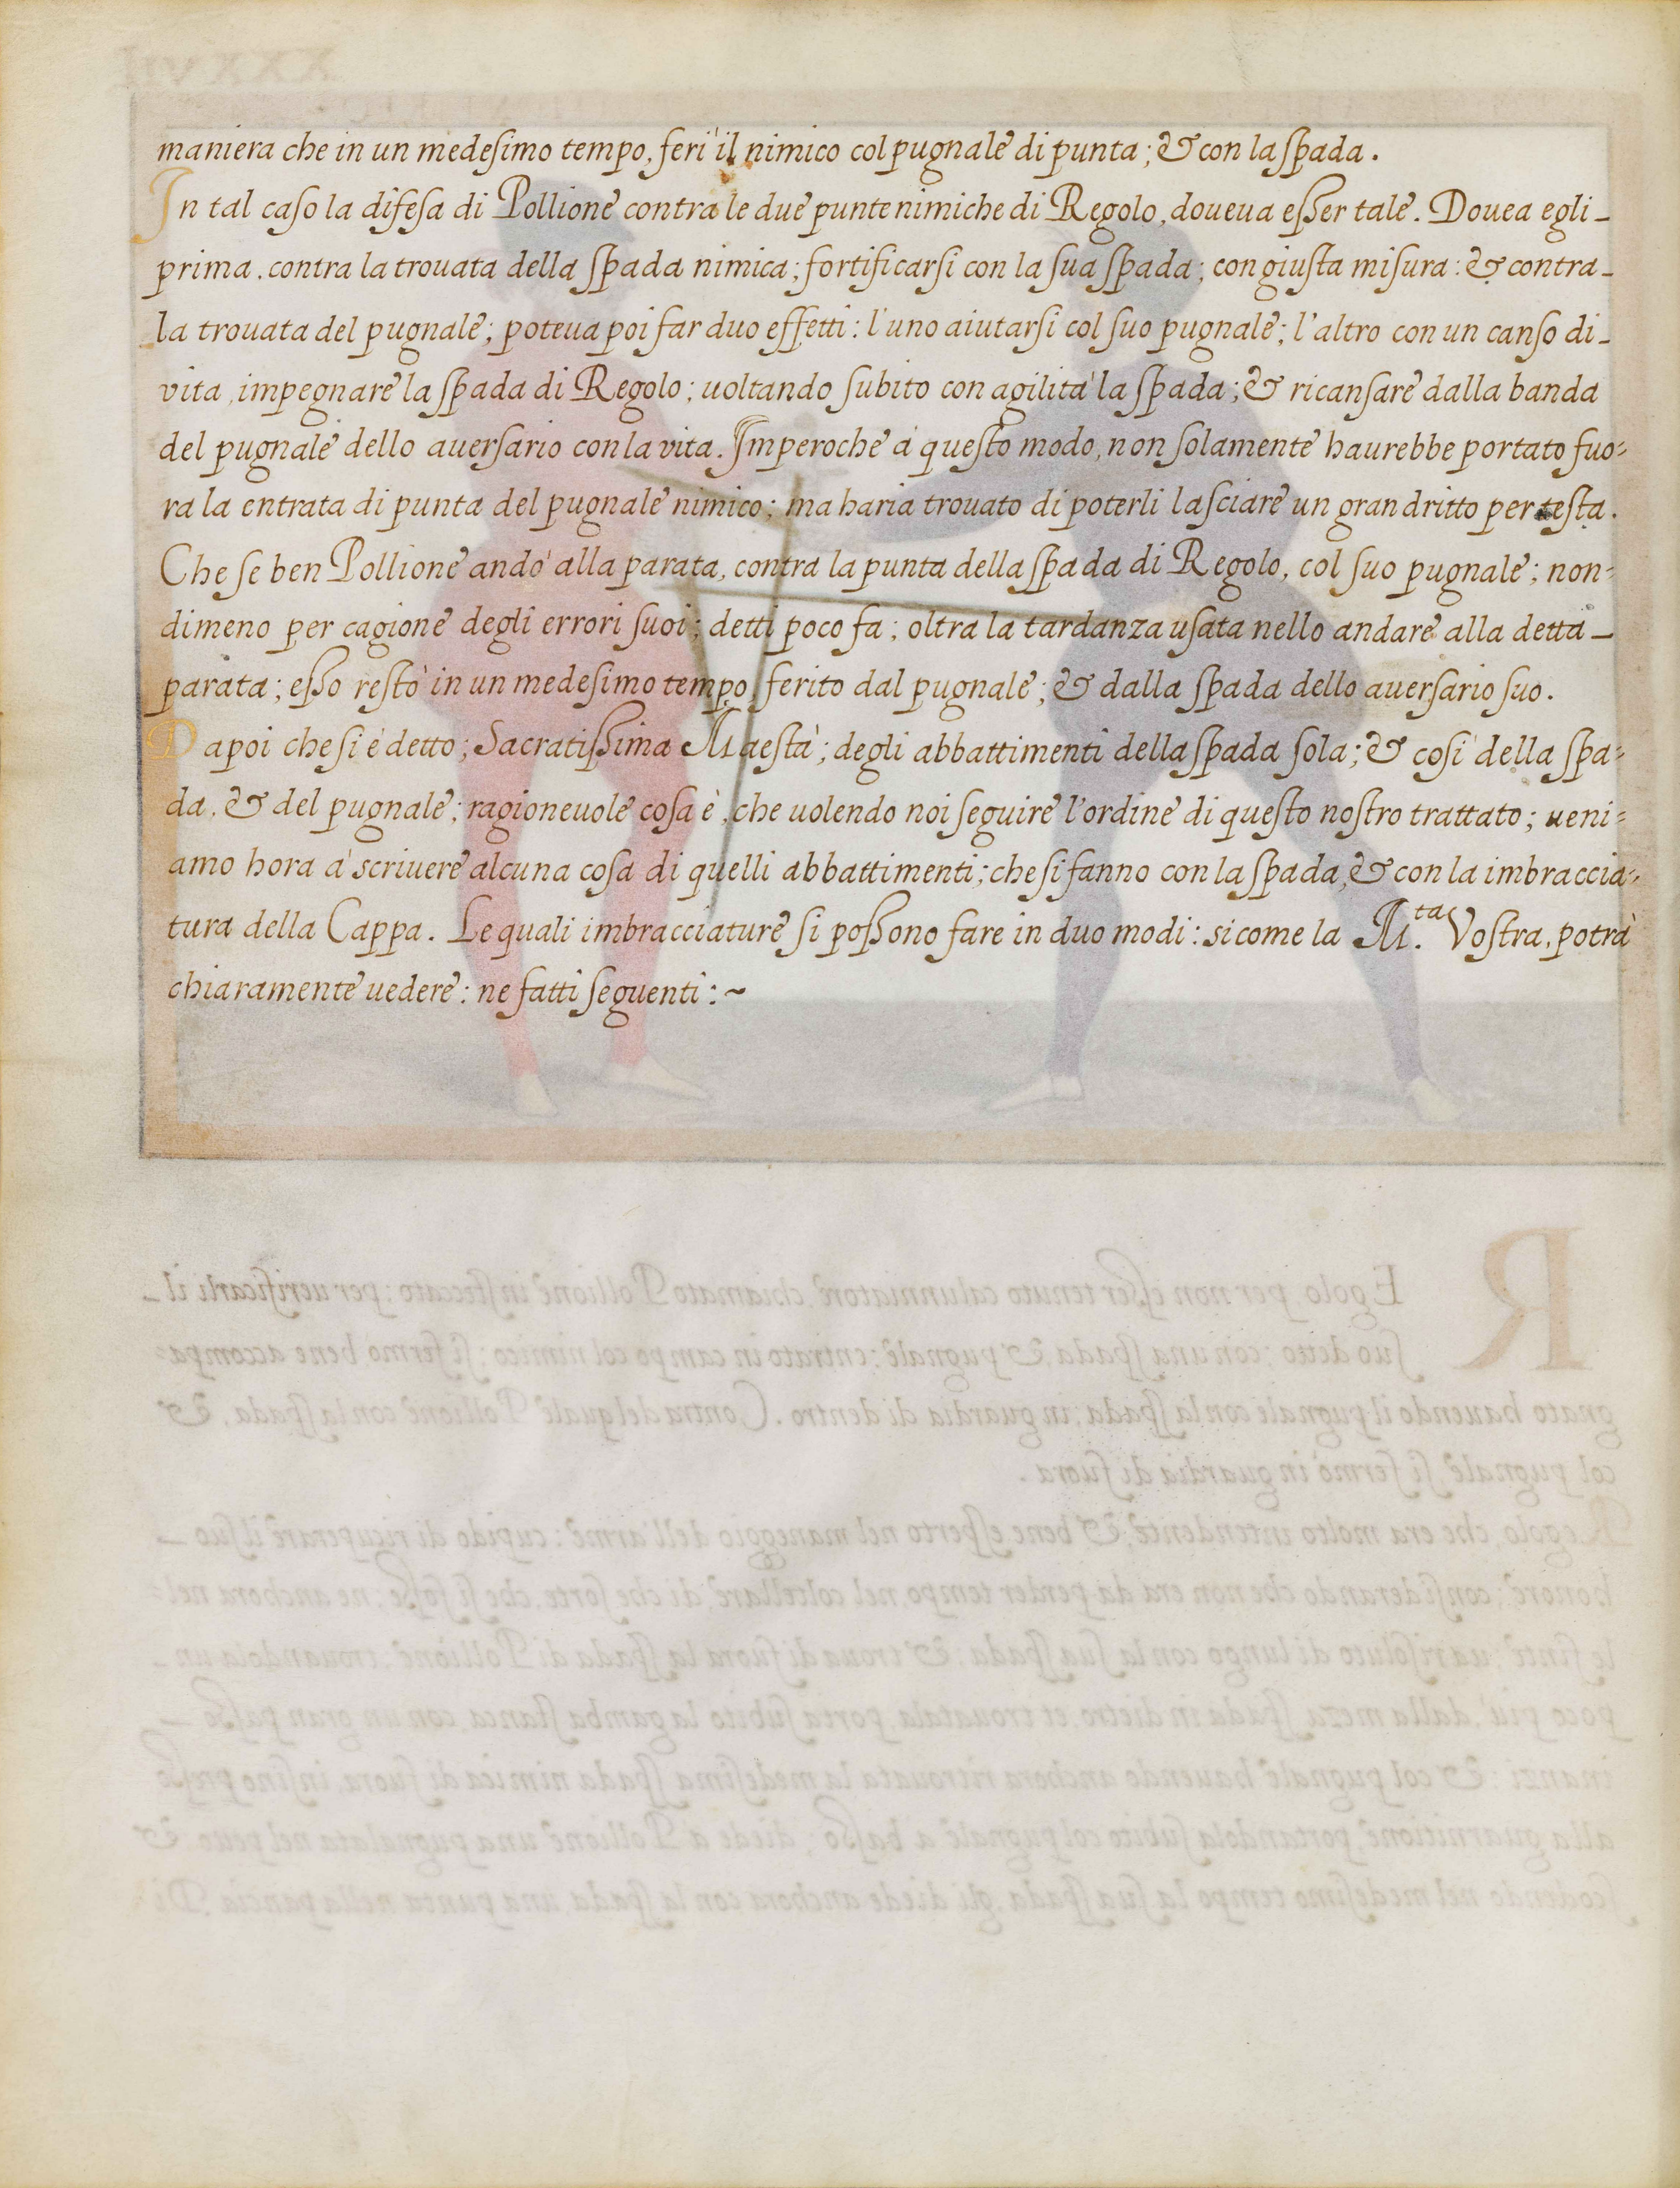 maniera che in un medeſimo tempo, ferì il nimico col pugnale di punta; & con la ſpada.
In tal caſo la difeſa di Pollione contra le due punte nimiche di Regolo, doueua eſſer tale. Douea egli_
prima, contra la trouata della ſpada nimica; fortificarſi con la ſua ſpada; con giuſta miſura: & contra_
la trouata del pugnale; poteua poi far duo effetti: l'uno aiutarſi col ſuo pugnale; l'altro con un canſo di_
vita, impegnare la ſpada di Regolo; uoltando ſubito con agilità la ſpada; & ricanſare dalla banda
del pugnale dello auerſario con la vita. Imperoche à queſto modo, non ſolamente haurebbe portato fuo=
ra la entrata di punta del pugnale nimico; ma haria trouato di poterli laſciare un gran dritto per teſta.
Che ſe ben Pollione andò alla parata, contra la punta della ſpada di Regolo, col ſuo pugnale; non=
dimeno per cagione degli errori ſuoi; detti poco fa; oltra la tardanza uſata nello andare alla detta_
parata; eſſo reſtò in un medeſimo tempo, ferito dal pugnale; & dalla ſpada dello auerſario ſuo.
Dapoi che ſi è detto; Sacratiſſima Maeſtà; degli abbattimenti della ſpada ſola; & coſì della ſpa=
da, & del pugnale; ragioneuole coſa è, che uolendo noi ſeguire l'ordine di queſto noſtro trattato; ueni=
amo hora à scriuere alcuna coſa di quelli abbattimenti; che ſi fanno con la ſpada, & con la imbraccia=
tura della Cappa. Le quali imbracciature ſi poſſono fare in duo modi: sicome la M.ta Voſtra, potrà
chiaramente uedere: ne fatti ſeguenti: ~